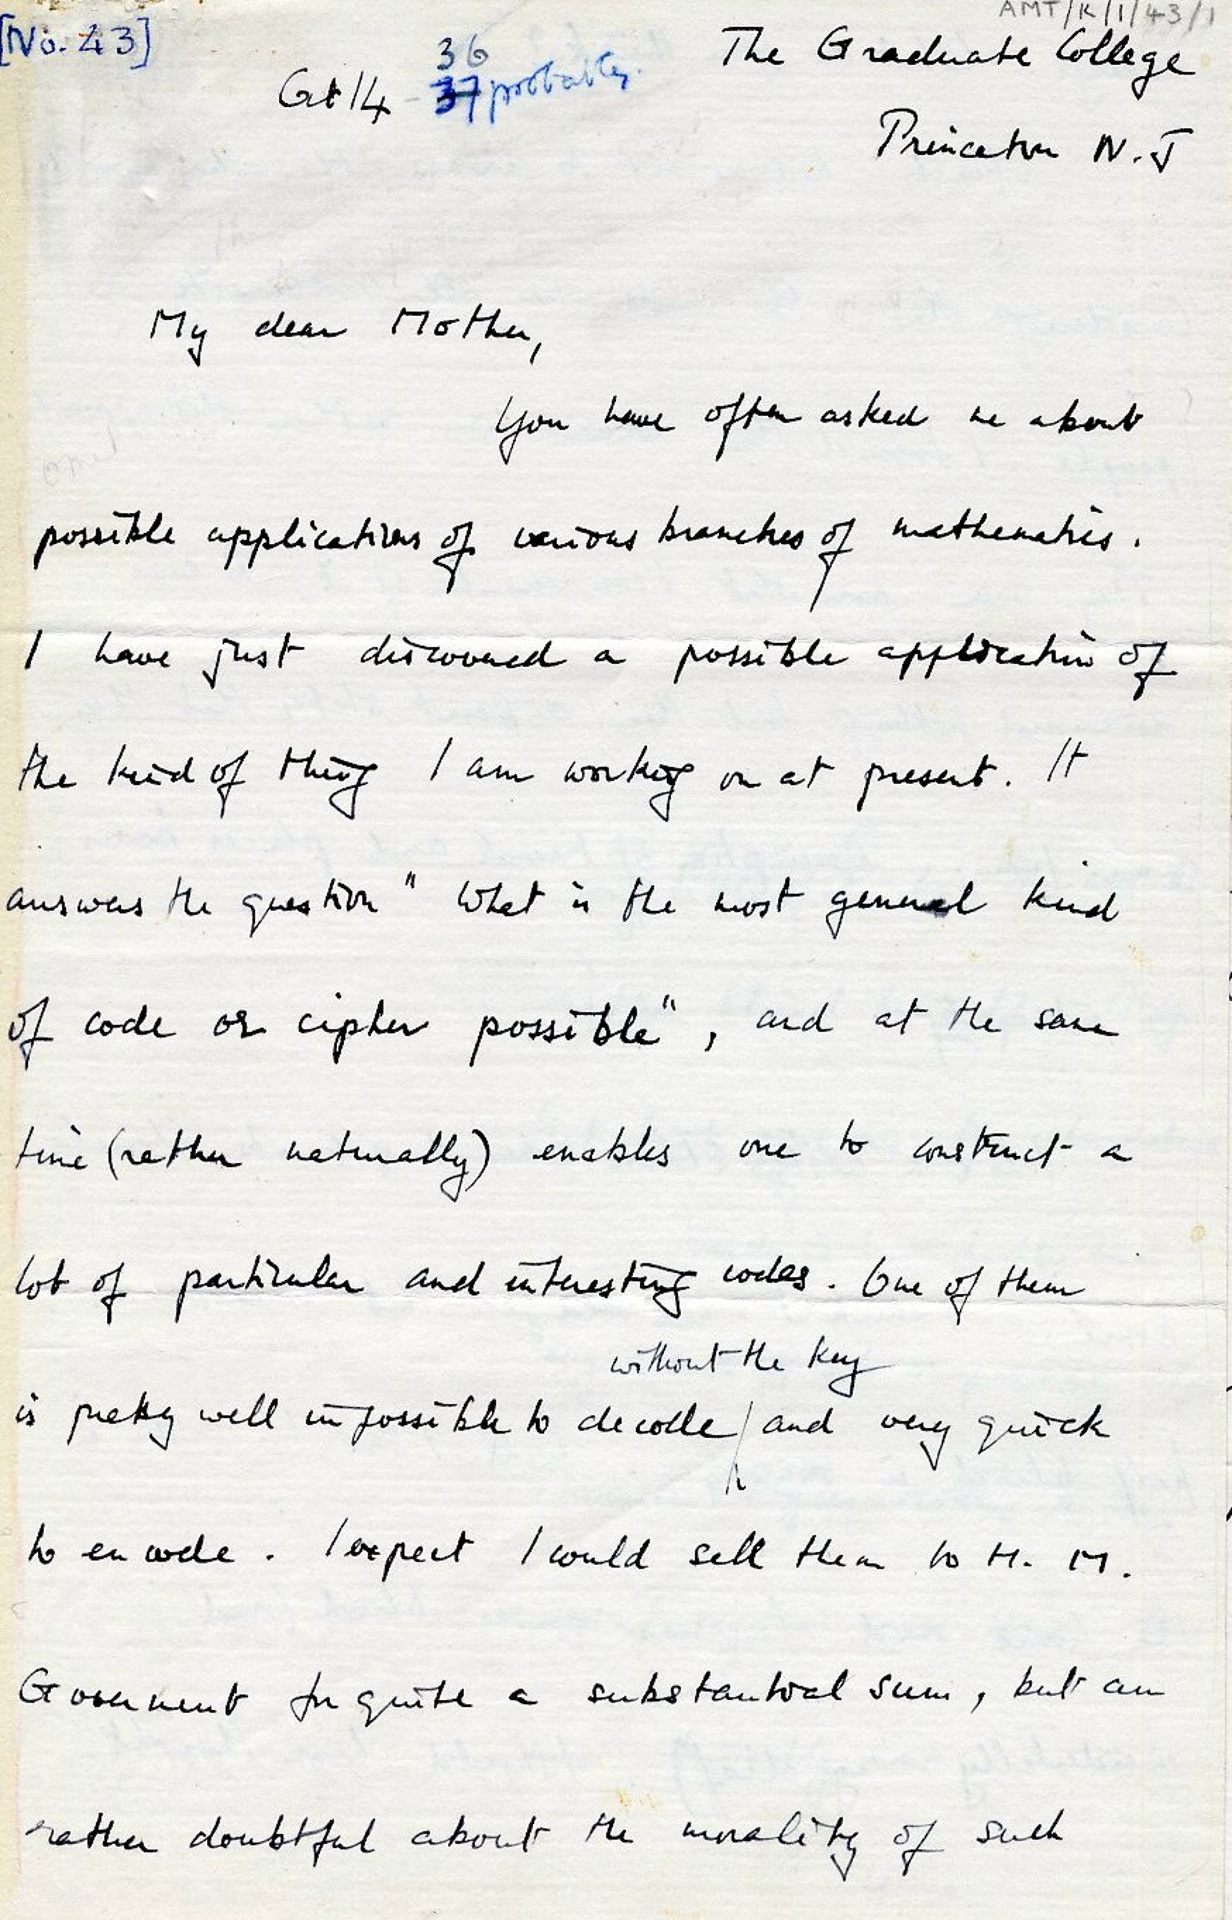 AMT/K/1/43/1
[No. 43]
The Graduate College
36
Oct 14 37 probably.
Princeton N.J
My dear Mother,
You have often asked me about
possible applications of various branches of mathematics.
I have just discovered a possible application of
the kind of thing I am working on at present. It
answers the question " What is the most general kind
of code or cipher possible", and at the same
time (rather naturally) enables one to construct a
lot of particular and interesting codes. One of them
without the key
is pretty well impossible to decode / and very quick
to encode. I expect I could sell them to H. M.
Goverment for quite a substantial sum, but am
rather doubtful about the morality of such